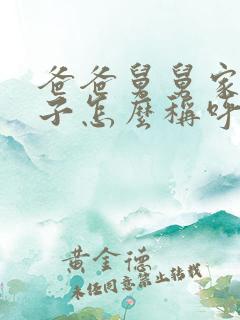 爸爸舅舅家
子怎麼稱呼
黃金德
未经同意禁止转载